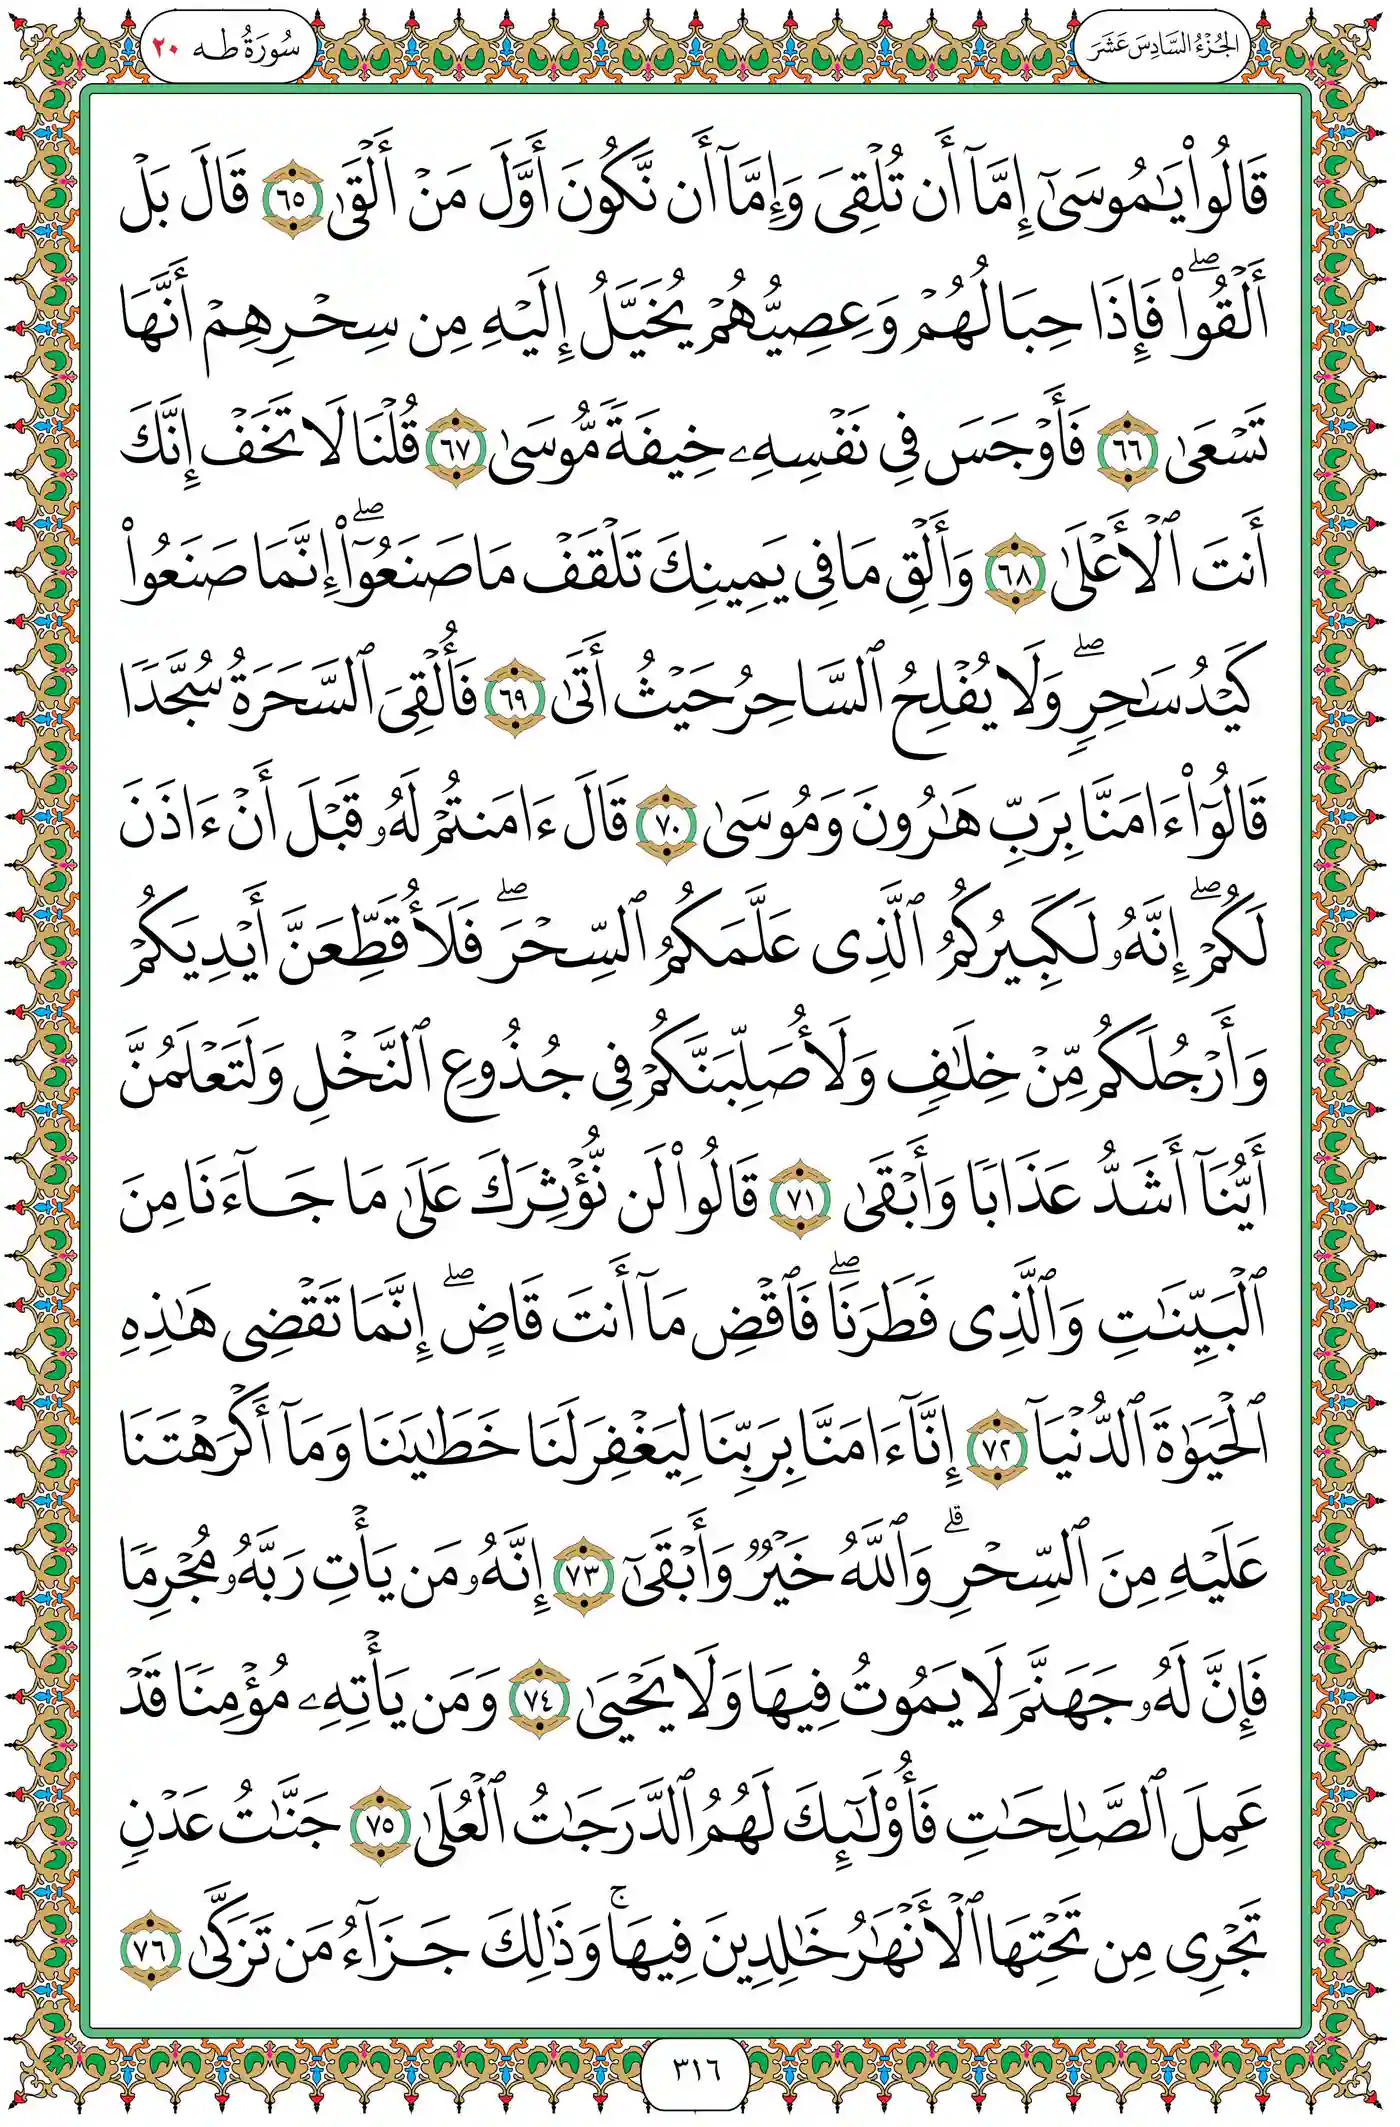 الجُزْءُ السَّادِسَ عَشَرَ
سُورَةُ طه ٢٠
قَالُوا۟ يَـٰمُوسَىٰٓ إِمَّآ أَن تُلْقِىَ وَإِمَّآ أَن نَّكُونَ أَوَّلَ مَنْ أَلْقَىٰ ٦٥ قَالَ بَلْ
أَلْقُوا۟ ۖ فَإِذَا حِبَالُهُمْ وَعِصِيُّهُمْ يُخَيَّلُ إِلَيْهِ مِن سِحْرِهِمْ أَنَّهَا
تَسْعَىٰ ٦٦ فَأَوْجَسَ فِى نَفْسِهِۦ خِيفَةً مُّوسَىٰ ٦٧ قُلْنَا لَا تَخَفْ إِنَّكَ
أَنتَ ٱلْأَعْلَىٰ ٦٨ وَأَلْقِ مَا فِى يَمِينِكَ تَلْقَفْ مَا صَنَعُوٓا۟ ۖ إِنَّمَا صَنَعُوا۟
كَيْدُ سَـٰحِرٍ ۖ وَلَا يُفْلِحُ ٱلسَّاحِرُ حَيْثُ أَتَىٰ ٦٩ فَأُلْقِىَ ٱلسَّحَرَةُ سُجَّدًا
قَالُوٓا۟ ءَامَنَّا بِرَبِّ هَـٰرُونَ وَمُوسَىٰ ٧٠ قَالَ ءَامَنتُمْ لَهُۥ قَبْلَ أَنْ ءَاذَنَ
لَكُمْ ۖ إِنَّهُۥ لَكَبِيرُكُمُ ٱلَّذِى عَلَّمَكُمُ ٱلسِّحْرَ ۖ فَلَأُقَطِّعَنَّ أَيْدِيَكُمْ
وَأَرْجُلَكُم مِّنْ خِلَـٰفٍ وَلَأُصَلِّبَنَّكُمْ فِى جُذُوعِ ٱلنَّخْلِ وَلَتَعْلَمُنَّ
أَيُّنَآ أَشَدُّ عَذَابًا وَأَبْقَىٰ ٧١ قَالُوا۟ لَن نُّؤْثِرَكَ عَلَىٰ مَا جَآءَنَا مِنَ
ٱلْبَيِّنَـٰتِ وَٱلَّذِى فَطَرَنَا ۖ فَٱقْضِ مَآ أَنتَ قَاضٍ ۖ إِنَّمَا تَقْضِى هَـٰذِهِ
ٱلْحَيَوٰةَ ٱلدُّنْيَآ ٧٢ إِنَّآ ءَامَنَّا بِرَبِّنَا لِيَغْفِرَ لَنَا خَطَـٰيَـٰنَا وَمَآ أَكْرَهْتَنَا
عَلَيْهِ مِنَ ٱلسِّحْرِ ۗ وَٱللَّهُ خَيْرٌ وَأَبْقَىٰٓ ٧٣ إِنَّهُۥ مَن يَأْتِ رَبَّهُۥ مُجْرِمًا
فَإِنَّ لَهُۥ جَهَنَّمَ لَا يَمُوتُ فِيهَا وَلَا يَحْيَىٰ ٧٤ وَمَن يَأْتِهِۦ مُؤْمِنًا قَدْ
عَمِلَ ٱلصَّـٰلِحَـٰتِ فَأُو۟لَـٰٓئِكَ لَهُمُ ٱلدَّرَجَـٰتُ ٱلْعُلَىٰ ٧٥ جَنَّـٰتُ عَدْنٍ
تَجْرِى مِن تَحْتِهَا ٱلْأَنْهَـٰرُ خَـٰلِدِينَ فِيهَا ۚ وَذَٰلِكَ جَزَآءُ مَن تَزَكَّىٰ ٧٦
٣١٦